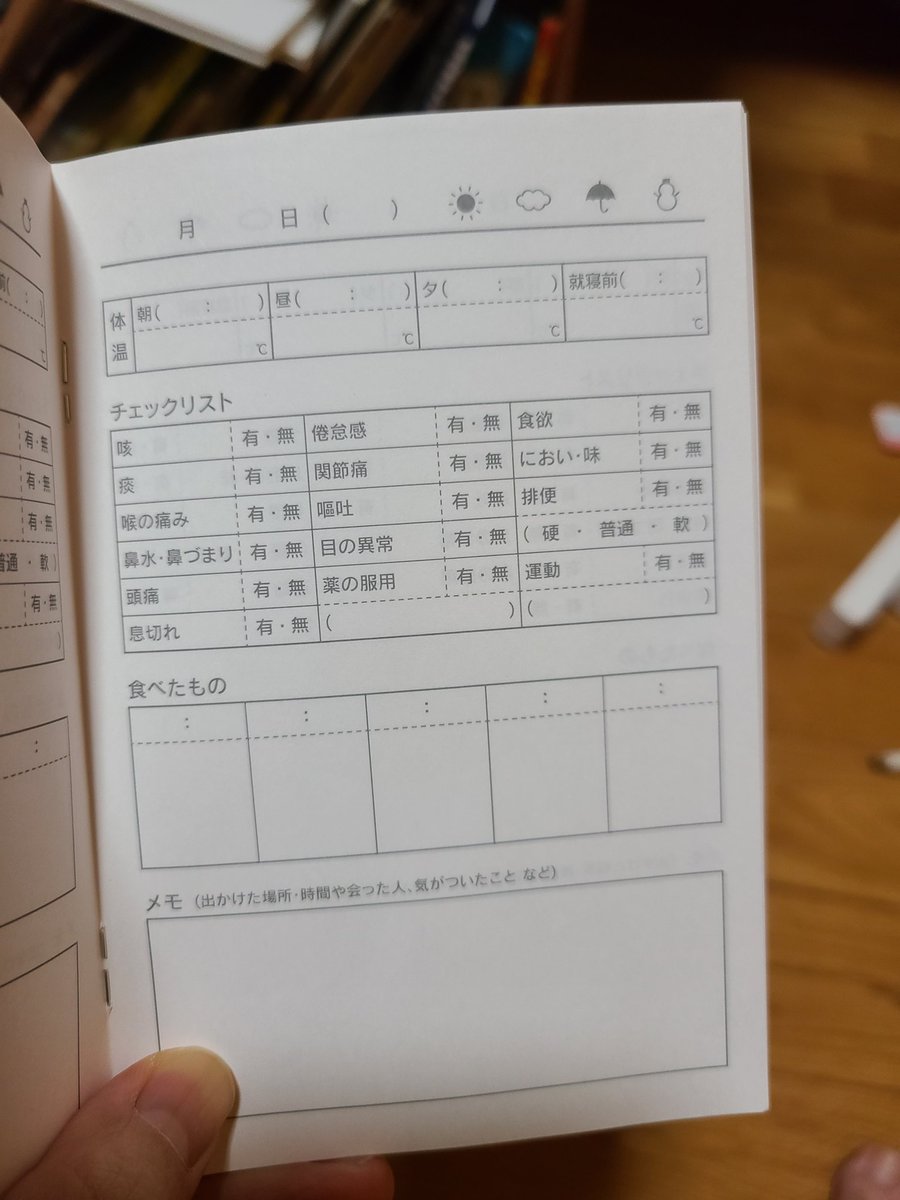 月 日( )
体温 朝( ) 昼( : ) 夕( : ) 就寝前( : )
℃ ℃ ℃ ℃
チェックリスト
咳 有・無 倦怠感 有・無 食欲 有・無
痰 有・無 関節痛 有・無 におい・味 有・無
喉の痛み 有・無 嘔吐 有・無 排便 有・無
鼻水・鼻づまり 有・無 目の異常 有・無 ( 硬 ・ 普通 ・ 軟 )
頭痛 有・無 薬の服用 有・無 運動 有・無
息切れ 有・無 ( ) ( )
食べたもの
: : : : :
メモ (出かけた場所・時間や会った人、気がついたこと など)
前( : )
℃
有・無
有・無
有・無
普通 ・ 軟 )
有・無
)
: